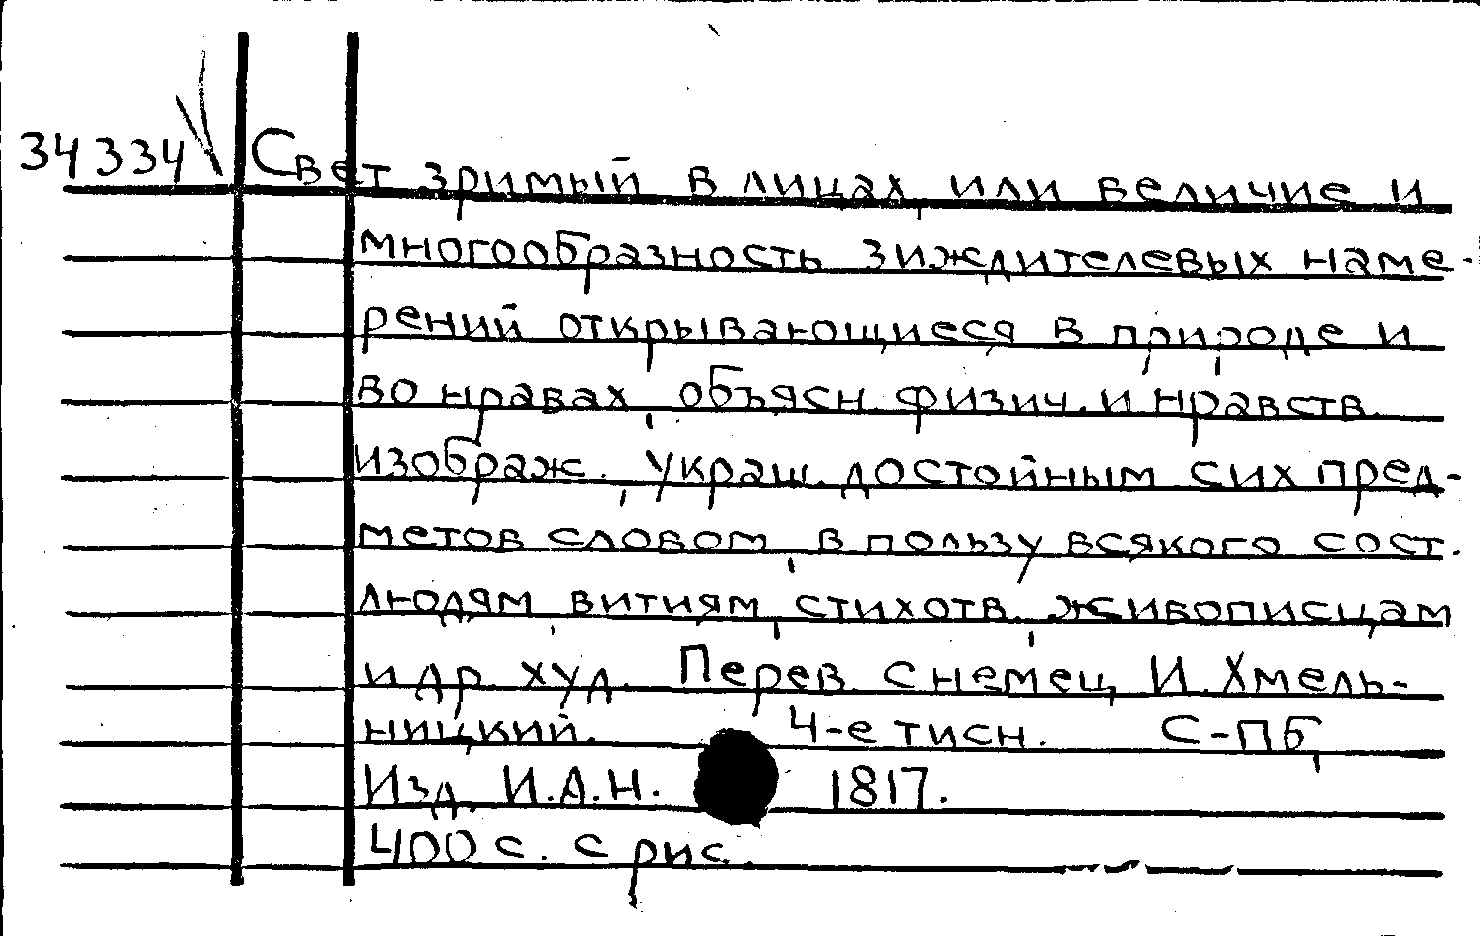 34334 Свет зримый в лицах, или величие и
многообразность зиждителевых наме-
рений открывающиеся в природе и
во нравах, объясн. физич. и нравств.
изображ., украш. достойным сих пред-
метов словом, в пользу всякого сост.
людям, витиям, стихотв., живописцам
и др. худ. Перев. с немец. И. Хмель-
ницкий. 4-е тисн. С-ПБ,
Изд. И.А.Н. 1817.
400 с. с рис.